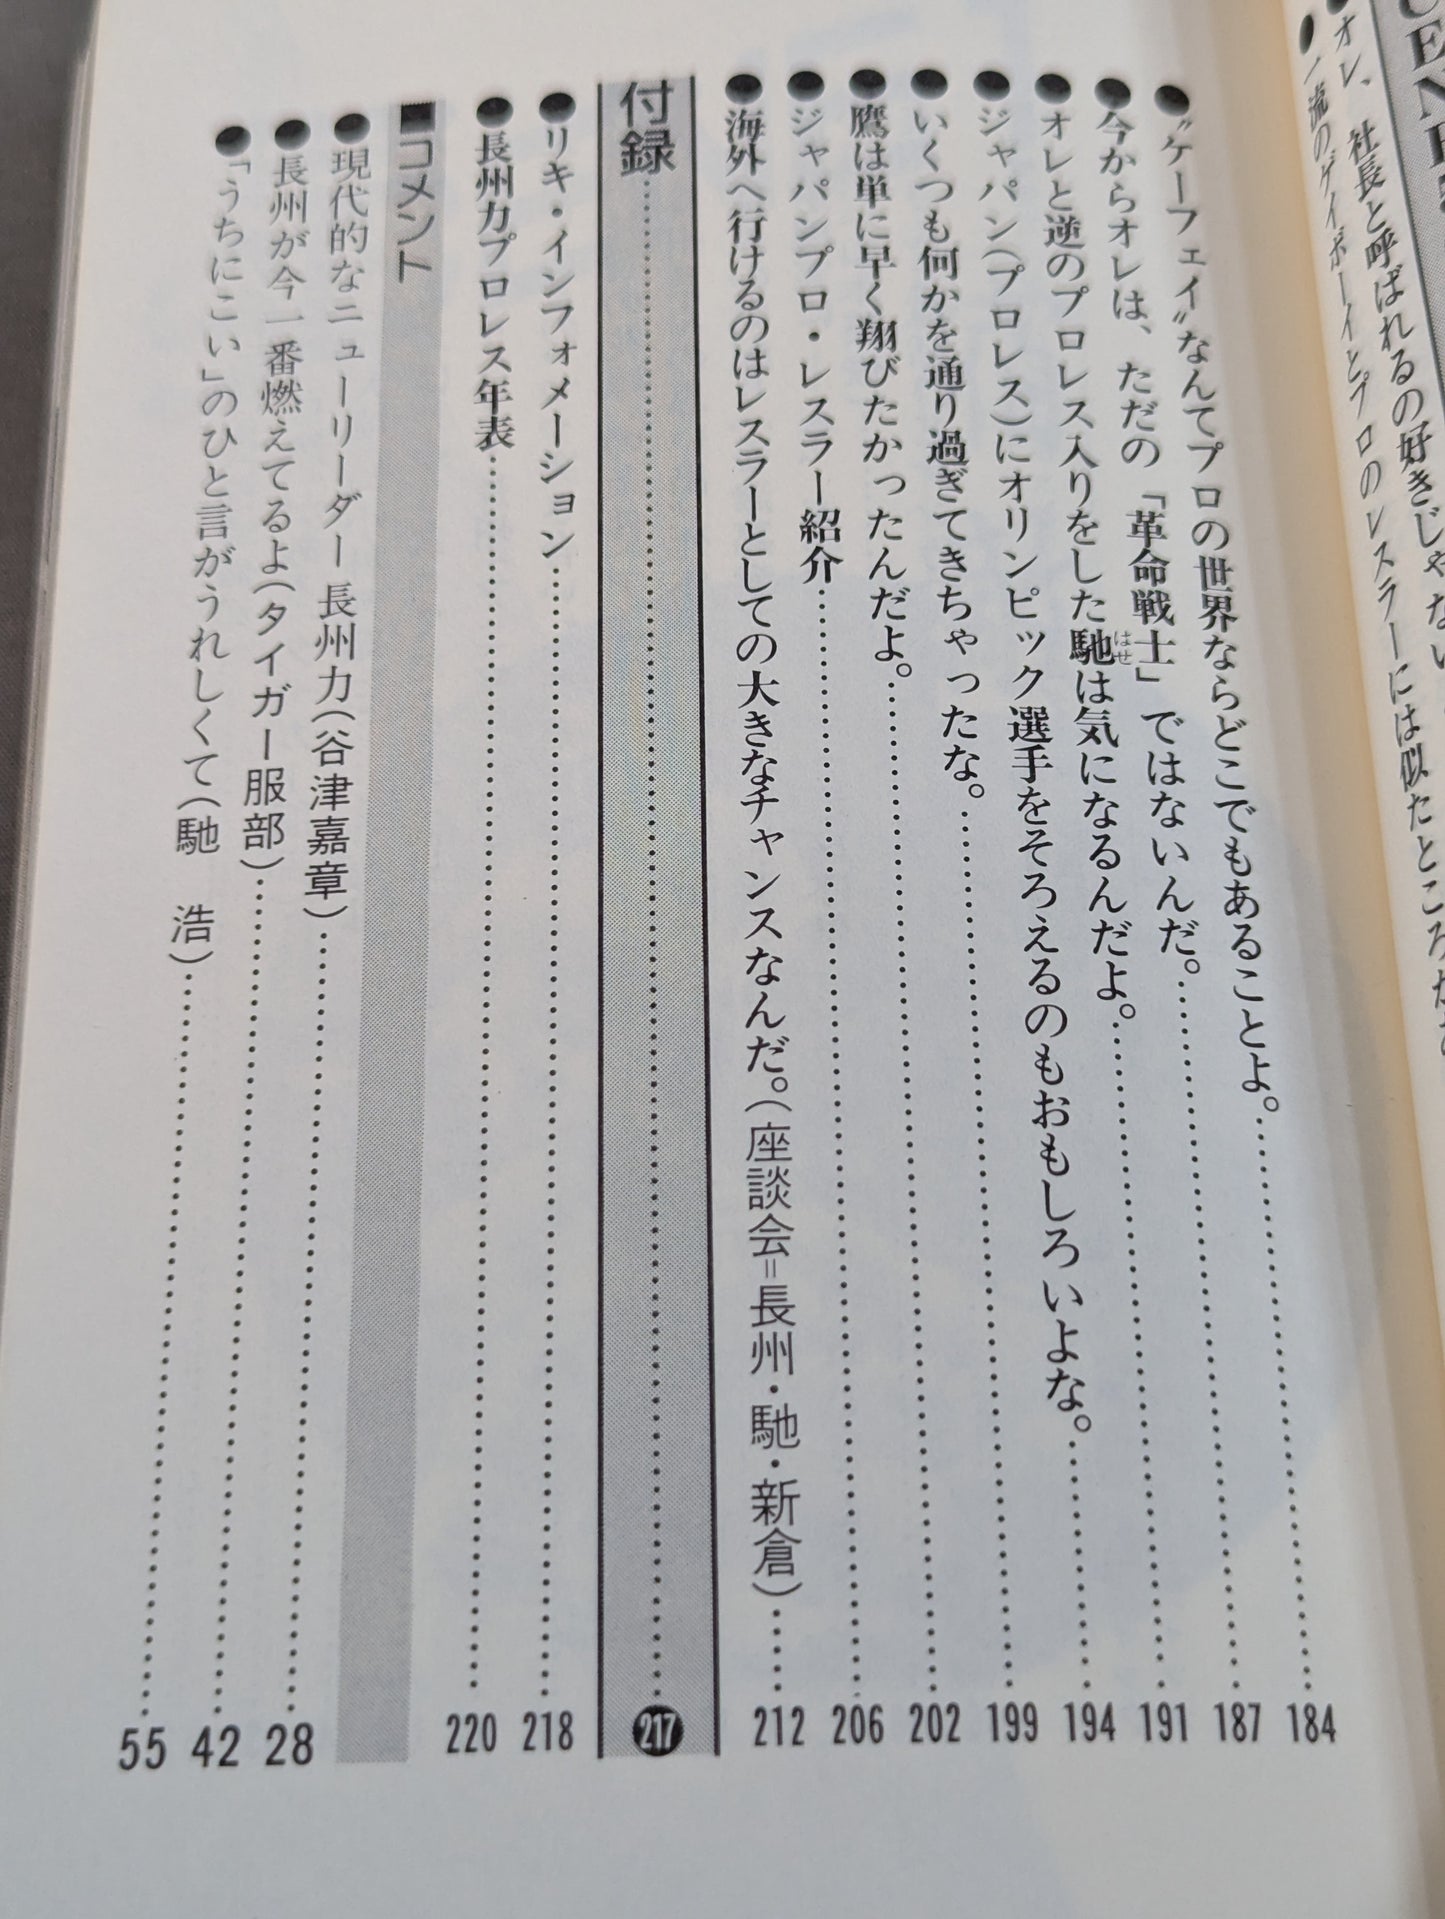 オレ、社長と呼ばれるの好きじゃない
●一流のゲイボーイとプロのレスラーには似たところが
●〝ケーフェイ〟なんてプロの世界ならどこでもあることよ。……184
●今からオレは、ただの「革命戦士」ではないんだ。……187
●オレと逆のプロレス入りをした馳(はせ)は気になるんだよ。……191
●ジャパン(プロレス)にオリンピック選手をそろえるのもおもしろいよな。……194
●いくつも何かを通り過ぎてきちゃったな。……199
●鷹は単に早く翔びたかったんだよ。……202
●ジャパンプロ・レスラー紹介……206
●海外へ行けるのはレスラーとしての大きなチャンスなんだ。(座談会=長州・馳・新倉)……212
付録……217
●リキ・インフォメーション……218
●長州力プロレス年表……220
■コメント
●現代的なニューリーダー長州力(谷津嘉章)……28
●長州が今一番燃えてるよ(タイガー服部)……42
●「うちにこい」のひと言がうれしくて(馳 浩)……55